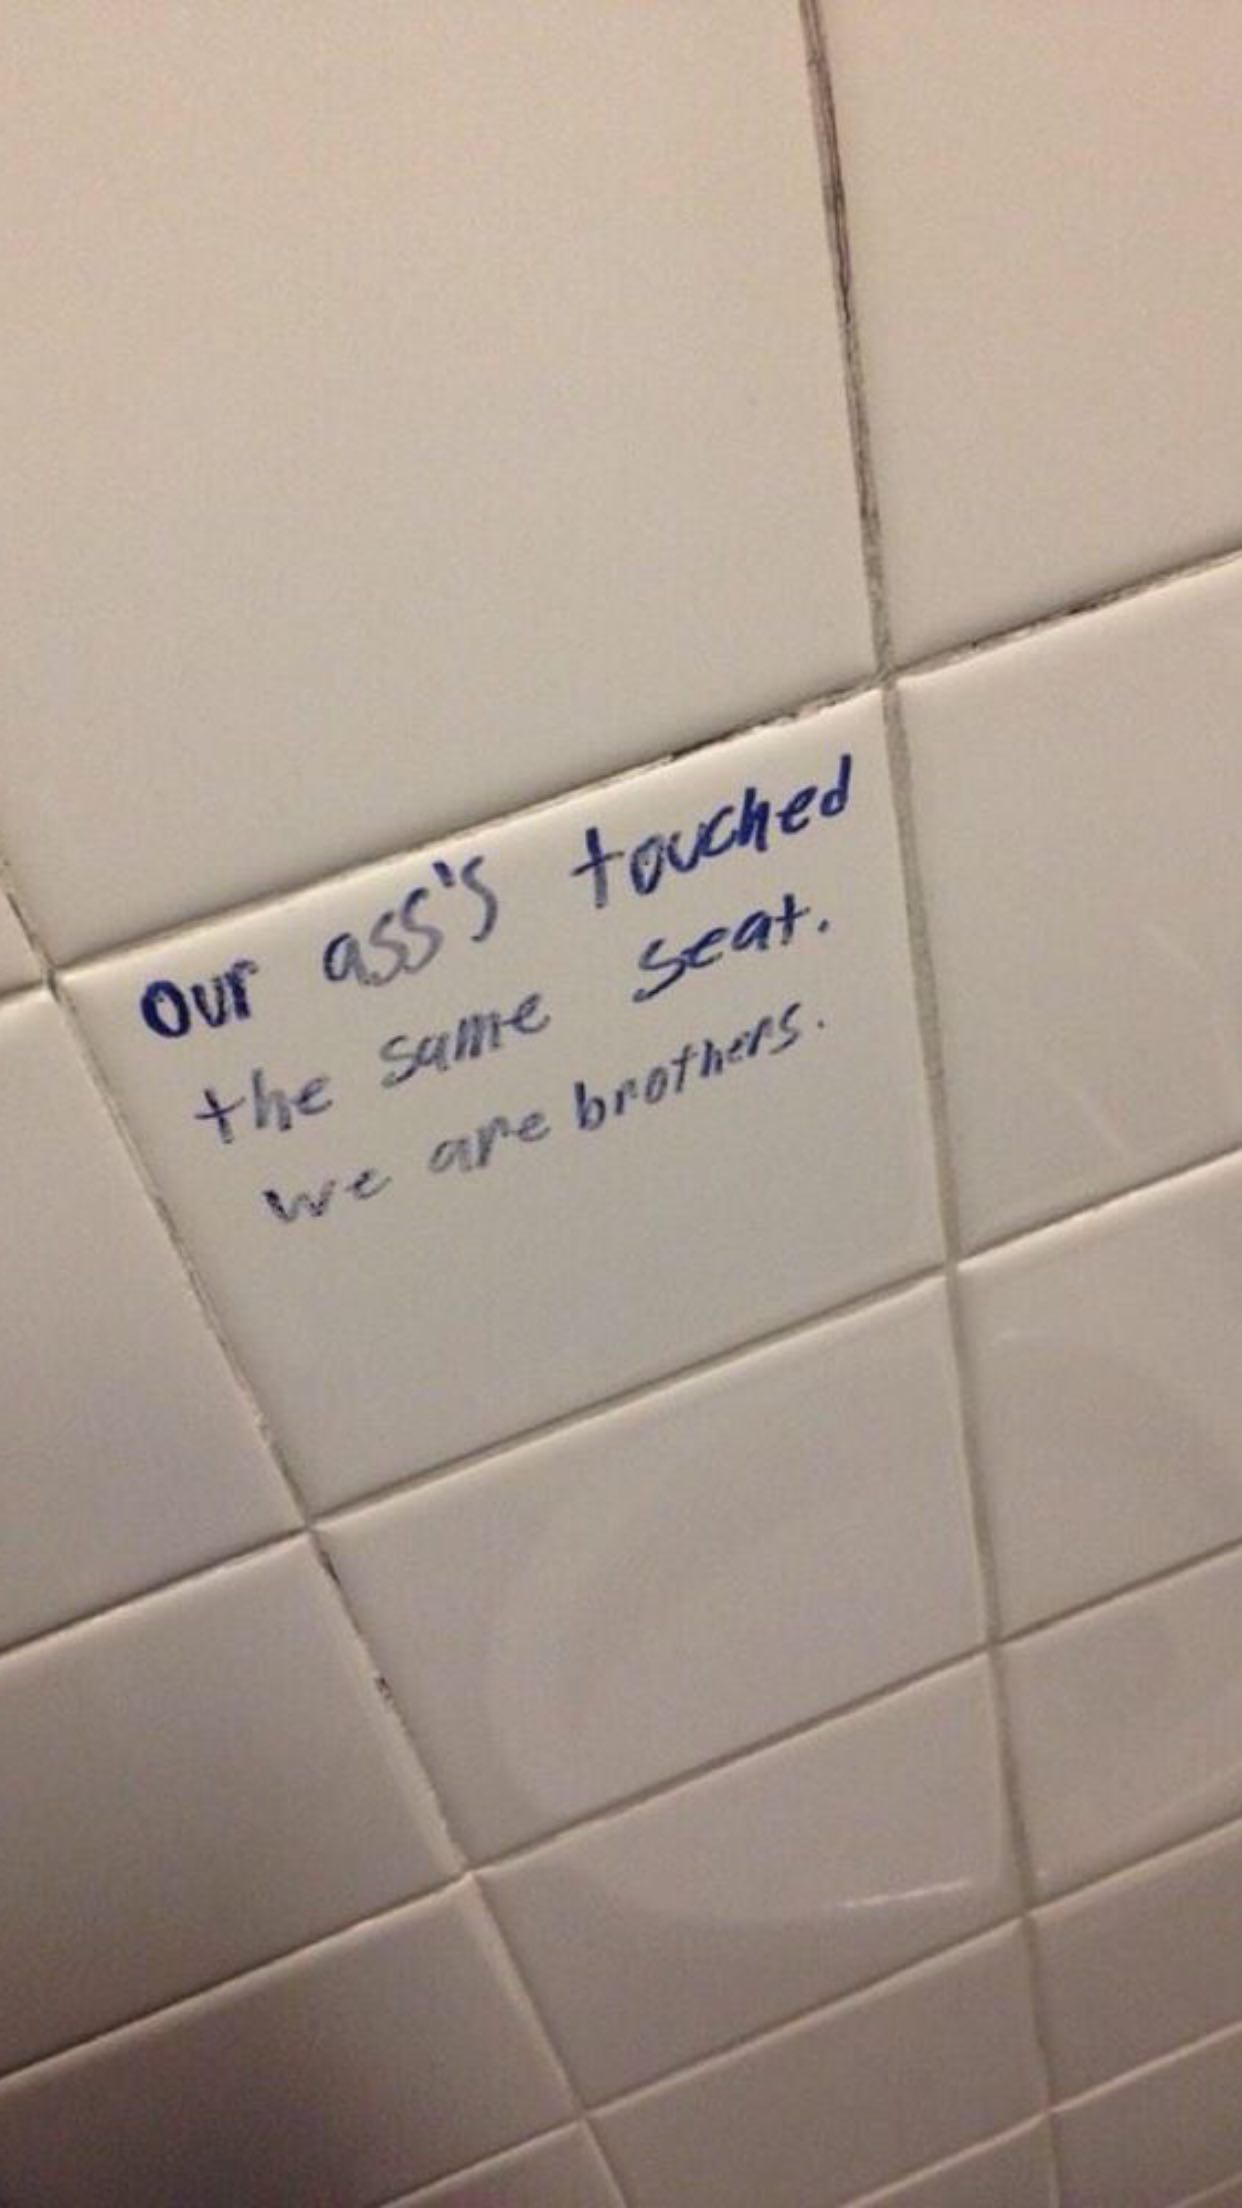 our ass's touched
the same seat.
we are brothers.